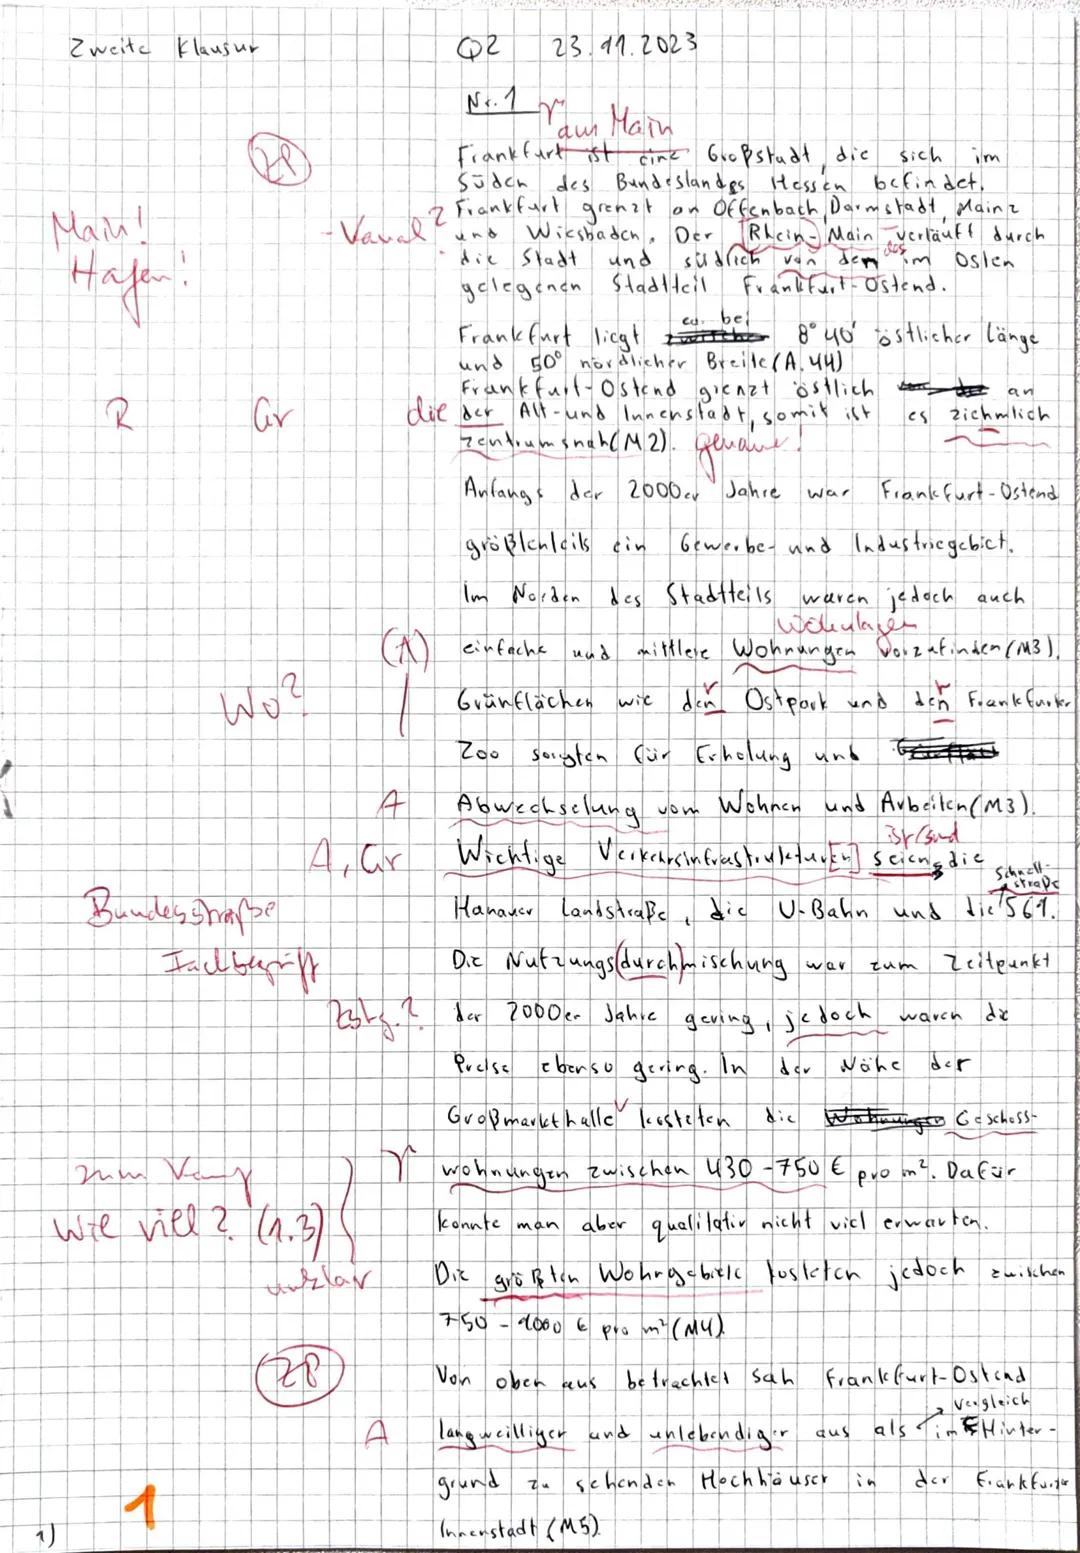 Zweite Klausur Q2 23.11.2023
Nr. 1
am Main
Frankfurt ist eine Großstadt, die sich im
Süden des Bundeslandes Hessen befindet.
Frankfurt grenzt an Offenbach, Darmstadt, Mainz
Main! - Kanal? und Wiesbaden. Der [Rhein-] Main verläuft durch
des
Hafen! die Stadt und südlich von dem im Osten
gelegenen Stadtteil Frankfurt-Ostend.
ca. bei
Frankfurt liegt 8° 40' östlicher Länge
und 50° nördlicher Breite (A. 44)
Frankfurt-Ostend grenzt östlich an
R Gr die der Alt-und Innenstadt, somit ist es ziehmlich
zentrumsnah (M2). genauer!
Anfangs der 2000er Jahre war Frankfurt-Ostend
größtenteils ein Gewerbe- und Industriegebiet.
Im Norden des Stadtteils waren jedoch auch
Wohnlagen
(A) einfache und mittlere Wohnungen vorzufinden (M3).
Wo? Grünflächen wie den Ostpark und den Frankfurter
r r
Zoo sorgten für Erholung und
A Abwechselung vom Wohnen und Arbeiten (M3).
ist/sind
A, Gr Wichtige Verkehrsinfrastruktur[en] seien, die
Schnell-
straße
Bundesstraße Hanauer Landstraße, die U-Bahn und die 561.
Fachbegriff Die Nutzungs(durch)mischung war zum Zeitpunkt
Zshg.? der 2000er Jahre gering, jedoch waren die
Preise ebenso gering. In der Nähe der
Großmarkthalle kosteten die Geschoss-
wohnungen zwischen 430 - 750 € pro m². Dafür
Wie viel? (1.3) konnte man aber qualitativ nicht viel erwarten.
unklar Die größten Wohngebiete kosteten jedoch zwischen
750 - 1000 € pro m² (M4).
Von oben aus betrachtet sah Frankfurt-Ostend
Vergleich
A langweilliger und unlebendiger aus als im Hinter-
grund zu sehenden Hochhäuser in der Frankfurter
1
1) Innenstadt (M5).